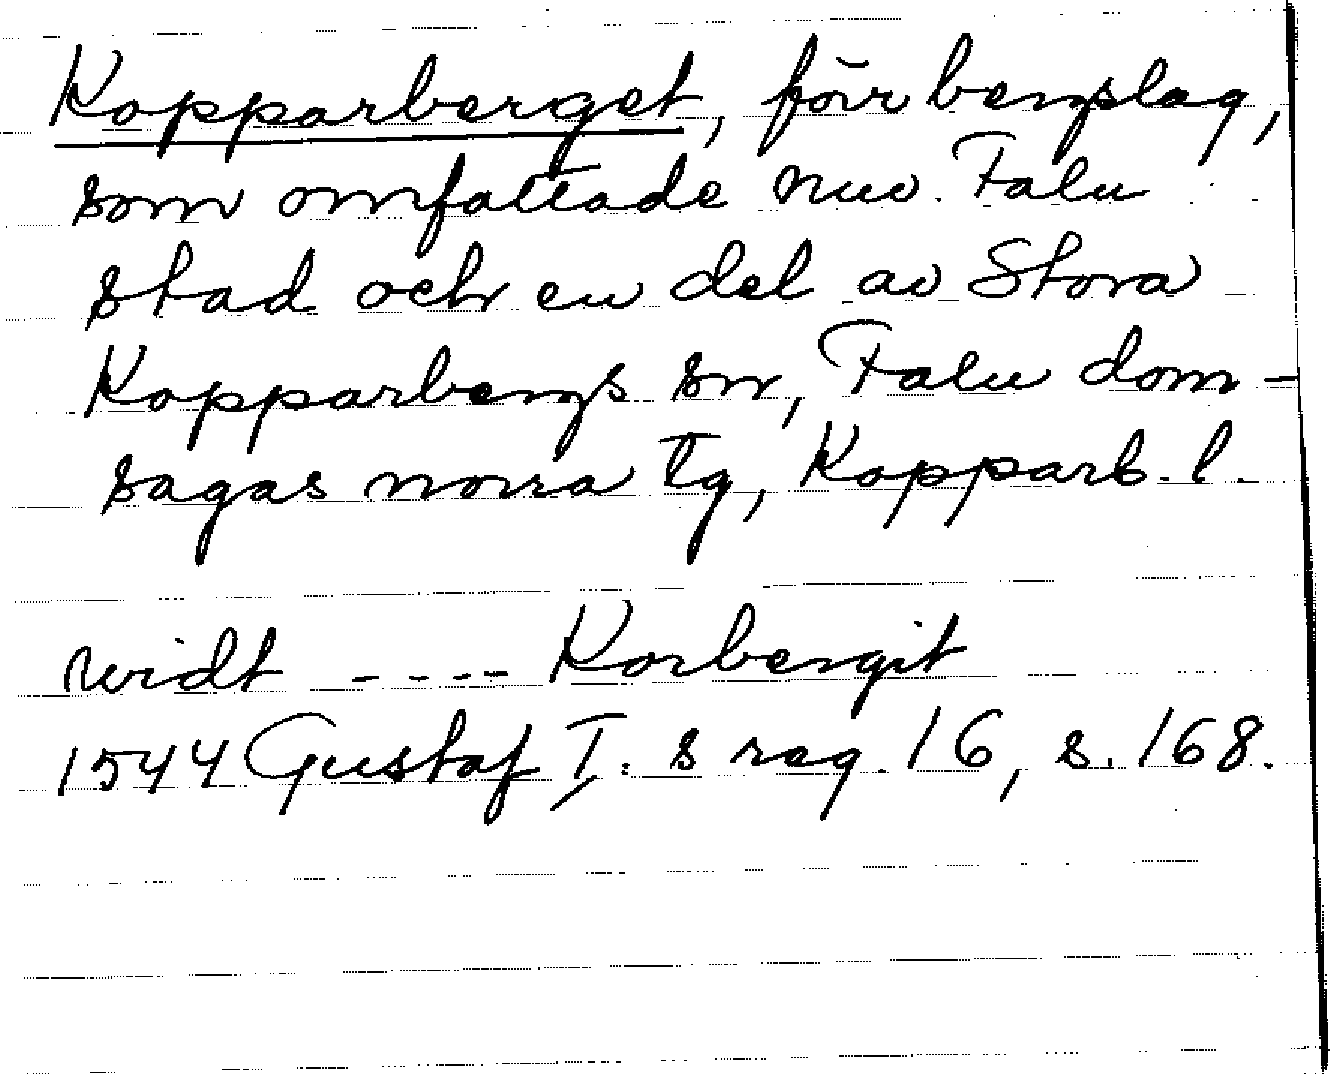 Kopparberget, förr bergslag,
som omfattade nuv. Falu
stad och en del av Stora
Kopparbergs sn, Falu dom-
sagas norra tg, Kopparb. l.
widt ---- Korbergit
1544 Gustaf I:s reg. 16, s. 168.